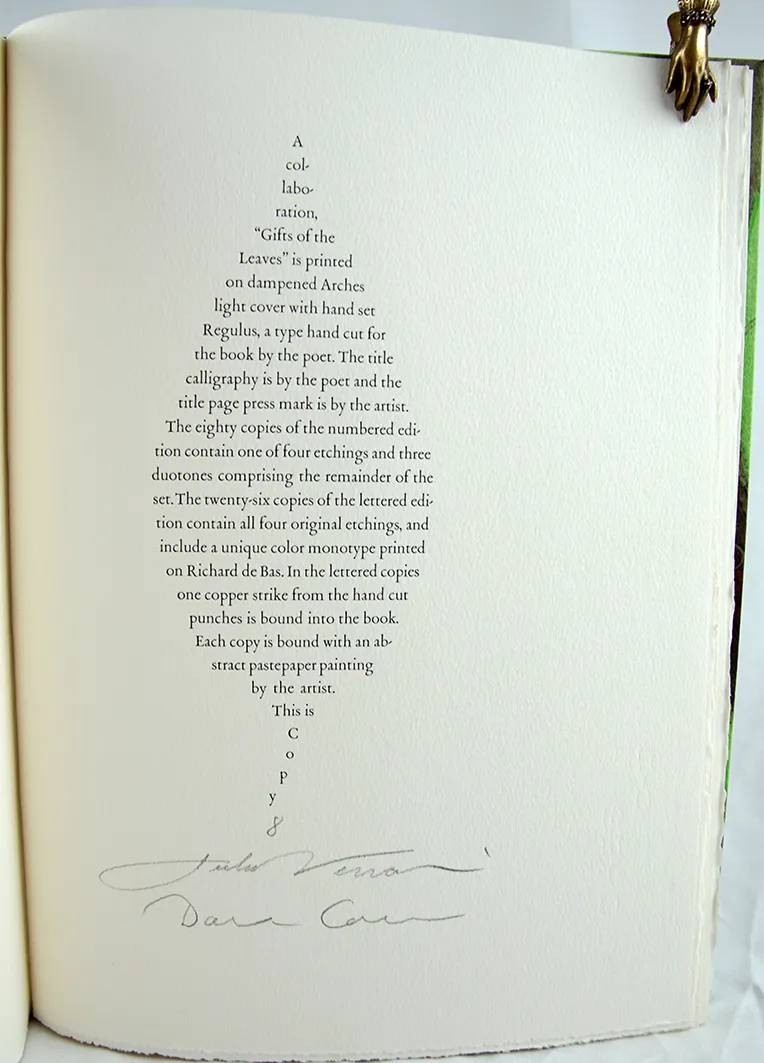 A
col-
labo-
ration,
“Gifts of the
Leaves” is printed
on dampened Arches
light cover with hand set
Regulus, a type hand cut for
the book by the poet. The title
calligraphy is by the poet and the
title page press mark is by the artist.
The eighty copies of the numbered edi-
tion contain one of four etchings and three
duotones comprising the remainder of the
set. The twenty-six copies of the lettered edi-
tion contain all four original etchings, and
include a unique color monotype printed
on Richard de Bas. In the lettered copies
one copper strike from the hand cut
punches is bound into the book.
Each copy is bound with an ab-
stract pastepaper painting
by the artist.
This is
C
o
p
y
8